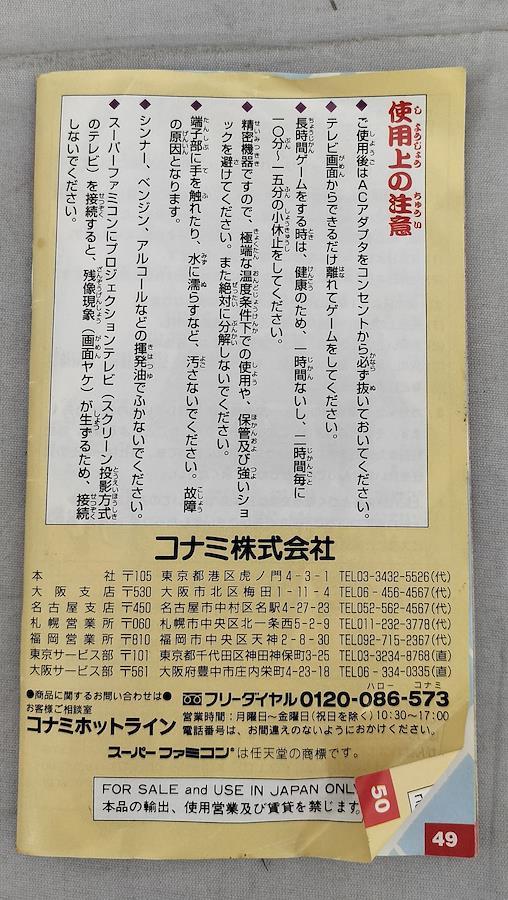 使用上の注意
◆ご使用後はACアダプタをコンセントから必ず抜いておいてください。
◆テレビ画面からできるだけ離れてゲームをしてください。
◆長時間ゲームをする時は、健康のため、一時間ないし、二時間毎に
一〇分〜一五分の小休止をしてください。
◆精密機器ですので、極端な温度条件下での使用や、保管及び強いショ
ックを避けてください。また絶対に分解しないでください。
◆端子部に手を触れたり、水に濡らすなど、汚さないでください。故障
の原因となります。
◆シンナー、ベンジン、アルコールなどの揮発油でふかないでください。
◆スーパーファミコンにプロジェクションテレビ（スクリーン投影方式
のテレビ）を接続すると、残像現象（画面ヤケ）が生ずるため、接続
しないでください。
コナミ株式会社
本社 〒105 東京都港区虎ノ門4-3-1 TEL03-3432-5526(代)
大阪支店 〒530 大阪市北区梅田1-11-4 TEL06-456-4567(代)
名古屋支店 〒450 名古屋市中村区名駅4-27-23 TEL052-562-4567(代)
札幌営業所 〒060 札幌市中央区北一条西5-2-9 TEL011-232-3778(代)
福岡営業所 〒810 福岡市中央区天神2-8-30 TEL092-715-2367(代)
東京サービス部 〒101 東京都千代田区神田神保町3-25 TEL03-3234-8768(直)
大阪サービス部 〒561 大阪府豊中市庄内栄町4-23-18 TEL06-334-0335(直)
●商品に関するお問い合わせは●
お客様ご相談室
コナミホットライン
ハロー コナミ
フリーダイヤル0120-086-573
営業時間：月曜日〜金曜日(祝日を除く)10:30〜17:00
電話番号は、お間違えのないようにおかけください。
スーパーファミコン®は任天堂の商標です。
FOR SALE and USE IN JAPAN ONLY
本品の輸出、使用営業及び賃貸を禁じます。
50
49